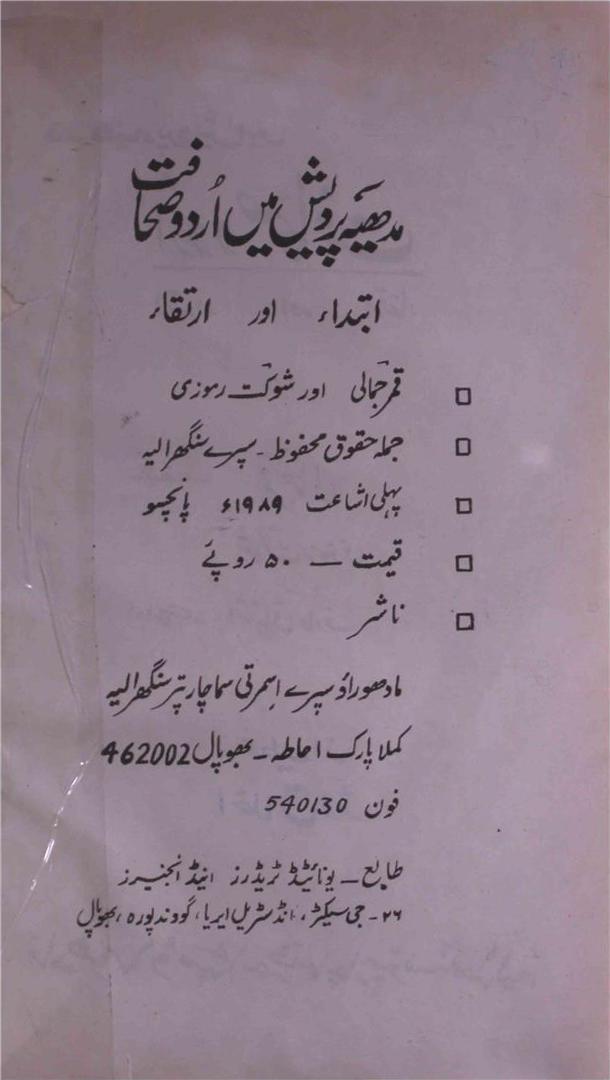 مدھیہ پردیش میں اُردو صحافت
ابتداء اور ارتقاء
قمر جمالی اور شوکت رموزی
جملہ حقوق محفوظ ۔ سپرے سنگھرالیہ
پہلی اشاعت ۱۹۸۹ء پانچسو
قیمت — ۵۰ روپئے
ناشر
مادھوراؤ سپرے اسمرتی سماچار پتر سنگھرالیہ
کملا پارک احاطہ ۔ بھوپال 462002
فون 540130
طابع ۔ یونائیٹڈ ٹریڈرز اینڈ انجنیرز
۲۶ ۔ جی سیکٹر، انڈسٹریل ایریا، گووندپورہ، بھوپال